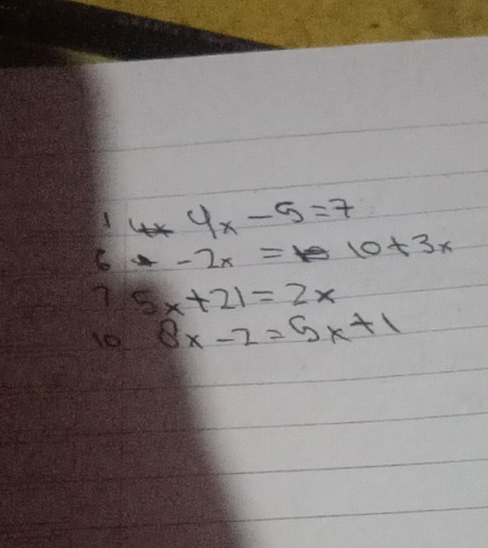 1 4x - 5 = 7
6 -2x = 10 + 3x
7 5x + 21 = 2x
10 8x - 2 = 5x + 1